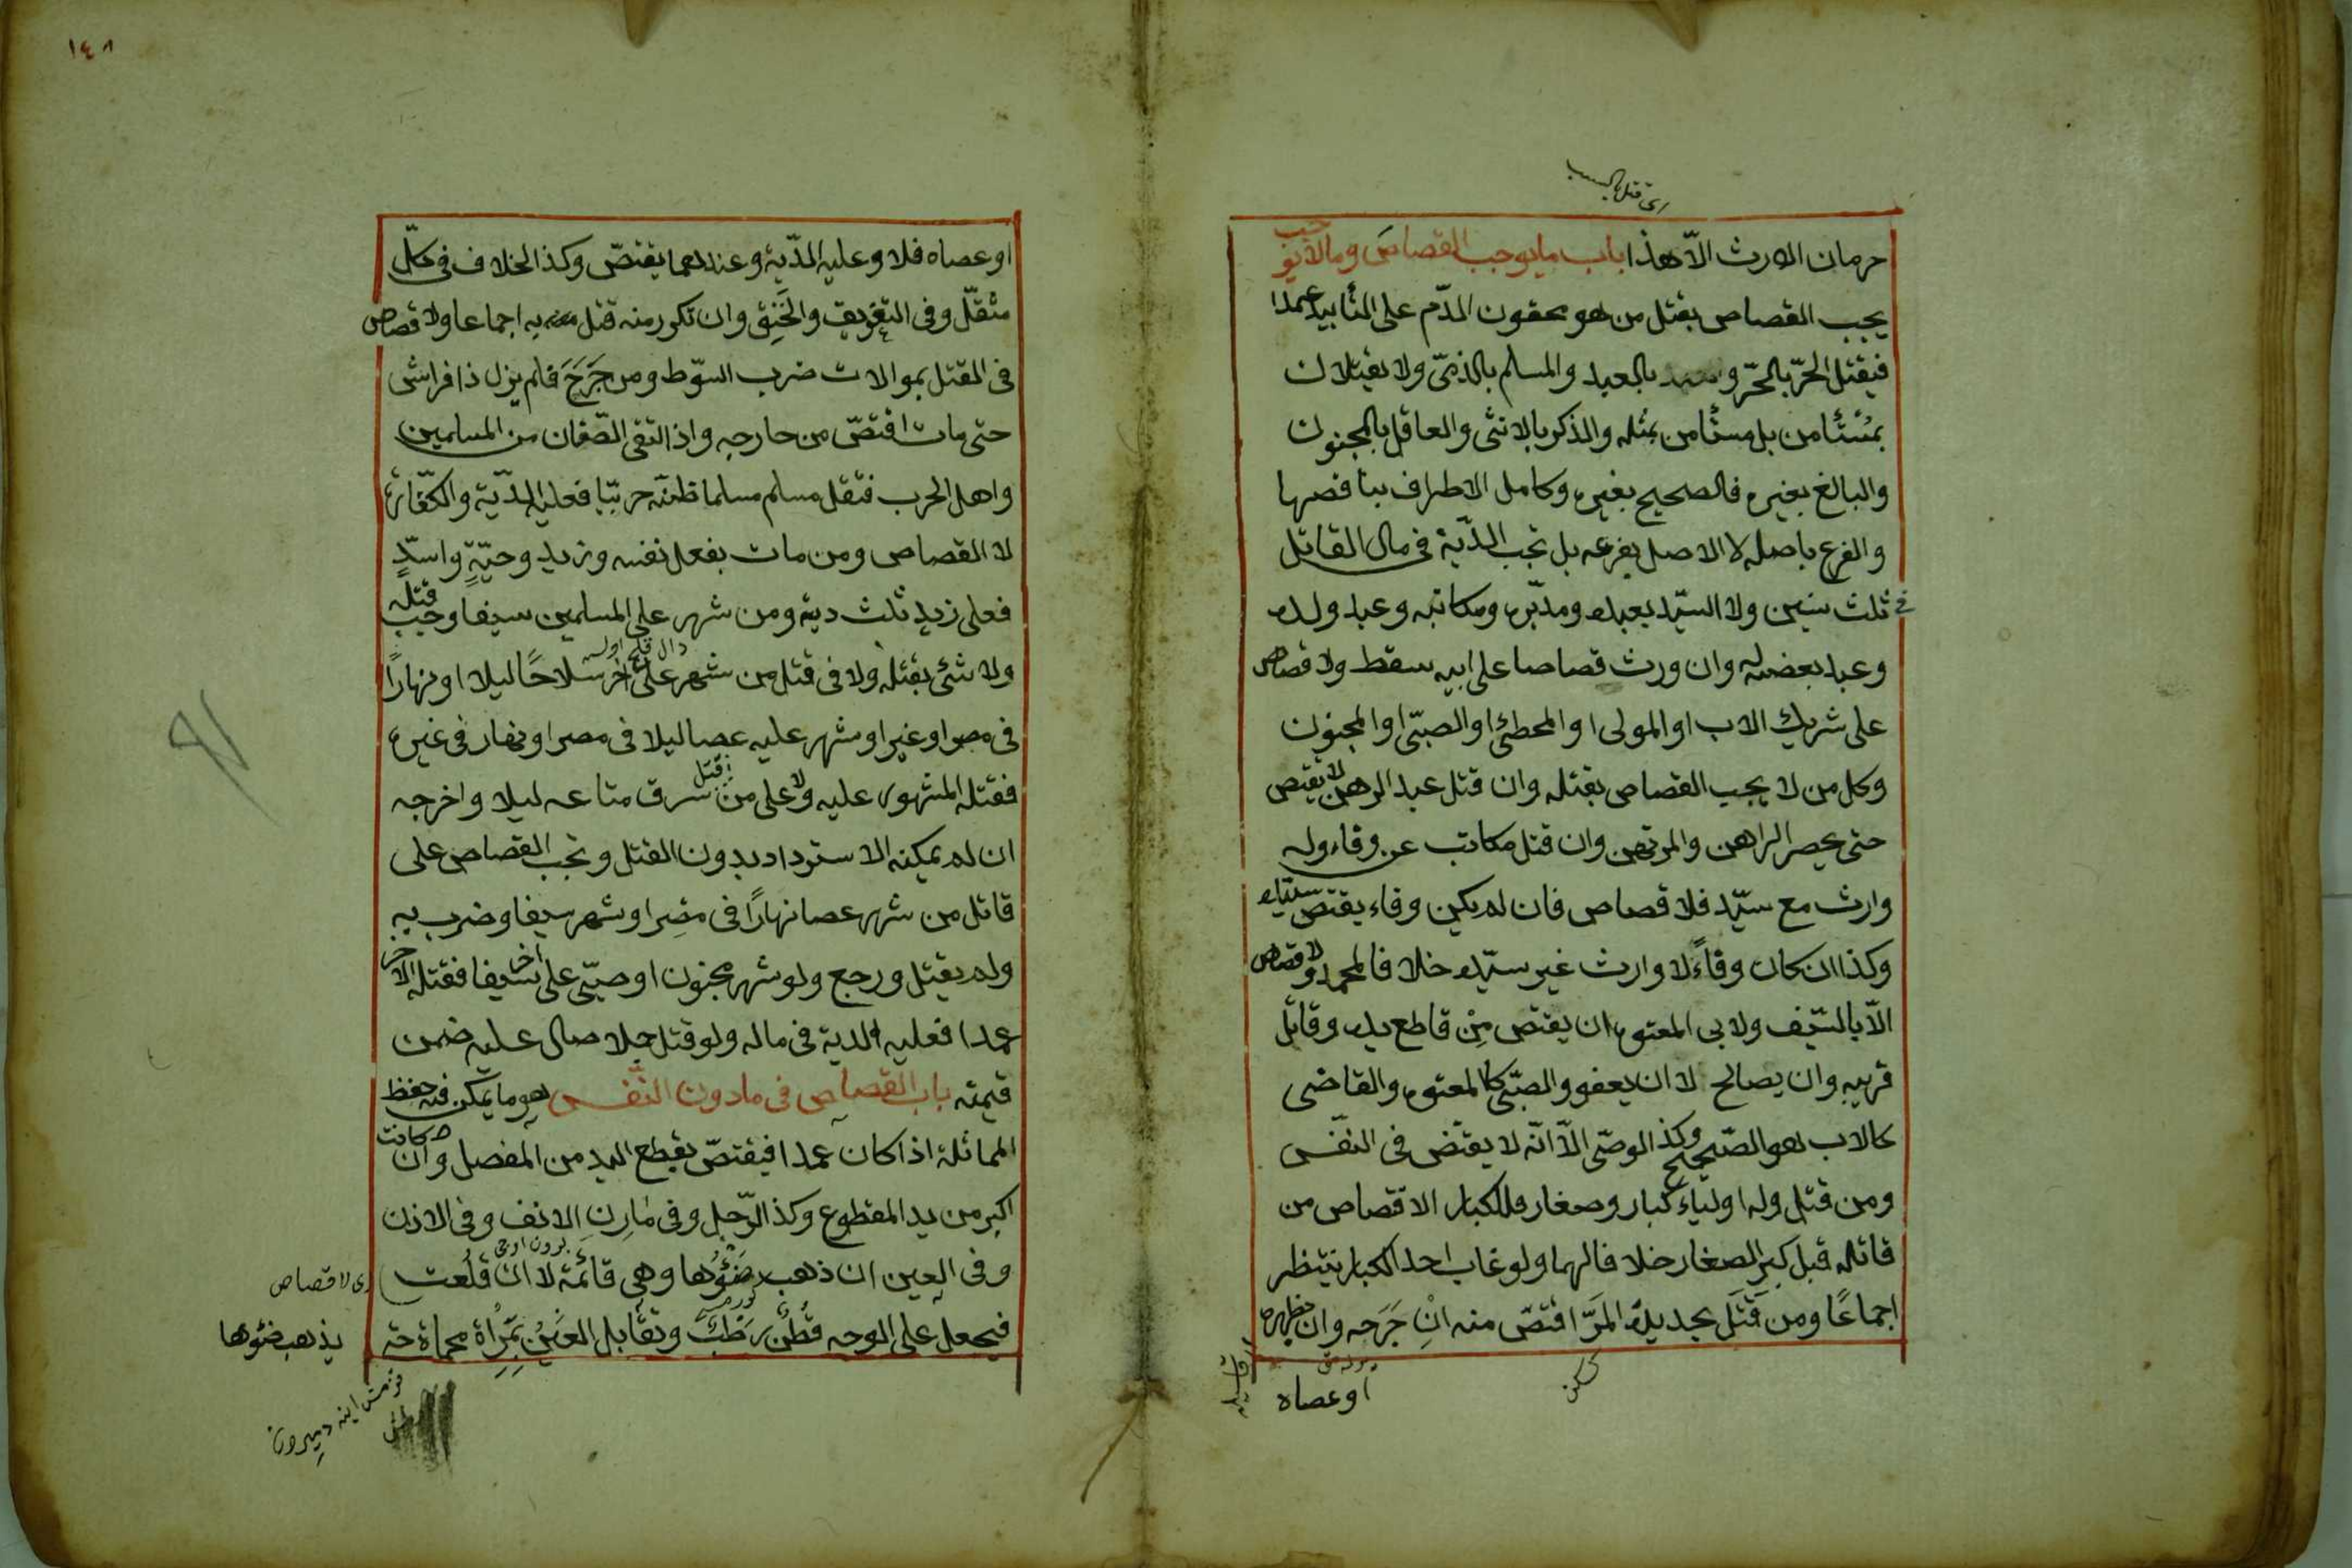 اى قتل بالسبب
حرمان الارث الّا هذا باب ما يوجب القصاص وما لا يوجب
يجب القصاص بقتل من هو محقون الدّم على التأبيد عمدا
فيقتل الحرّ بالحرّ و بالعبد والمسلم بالذمّى ولا يقتلان
بمستأمن بل مستأمن بمثله والذكر بالانثى والعاقل بالمجنون
والبالغ بغيره فالصحيح بغيره وكامل الاطراف بناقصها
والفرع باصله لا الاصل بفرعه بل تجب الدّية فى مال القاتل
فى ثلث سنين ولا السيّد بعبده ومدبّره ومكاتبه وعبد ولده
وعبد بعضه له وان ورث قصاصا على ابيه سقط ولا قصاص
على شريك الاب او المولى او المخطئ او الصبّى او المجنون
وكل من لا يجب القصاص بقتله وان قتل عبد الرهن لا يقتص
حتى يحصر الراهن والمرتهن وان قتل مكاتب عن وفاء وله
وارث مع سيّد فلا قصاص فان لم يكن وفاء يقتصّ سيّده
وكذا ان كان وفاءً لا وارث غير سيّده خلافا لمحمد ولا قصاص
الّا بالسّيف ولابى المعتوه ان يقتص مِنْ قاطع يده وقاتل
قريبه وان يصالح لا ان يعفو والصبّى كالمعتوه والقاضى
كالاب هو الصّحيح وكذ الوصّى الّا انّه لا يقتص فى النفس
ومن قتل وله اولياء كبار وصغار فللكبار الاقتصاص من
قاتله قبل كبر الصغار خلافا لهما ولو غاب احد الكبار ينتظر
اجماعًا ومن قَتَلَ بحديدة المَرّ اقتصّ منه انْ جَرَحه وان بظهره
او عصاه
١٤٨
او عصاه فلا وعليه الدّية وعندهما يقتصّ وكذ الخلاف فى كلّ
مثقّل وفى التغريق والخَنِق وان تكرر منه قتل به اجماعا ولا قصاص
فى القتل بموالات ضرب السّوط ومن جَرَحَ فلم يزل ذا فراش
حتى مات اقتصّ من جارحه واذ التقى الصّفان من المسلمين
واهل الحرب فقتل مسلم مسلما ظنّه حربّيا فعليه الدّية والكفّارة
لا القصاص ومن مات بفعل نفسه وزيد وحيّةٍ واسدٍ
فعلى زيدٍ ثلث دية ومن شهر على المسلمين سيفا وجب قتله
ولا شئ بقتله ولا فى قتل من شهر على اخر سلاحًا ليلا او نهارًا
فى مصر او غيره او شهر عليه عصا ليلا فى مصر او نهار فى غيره
فقتله المشهور عليه ولا على من قتل من سرق متاعه ليلا واخرجه
ان لم يمكنه الاسترداد بدون القتل وتجب القصاص على
قاتل من شهر عصا نهارًا فى مصِر او شهر سيفا وضرب به
ولم يقتل ورجع ولو شهر مجنون او صبّى على اخر سيفا فقتله الاخر
عمدا فعليه الدية فى ماله ولو قتل جملا صال عليه ضمن
قيمته باب القصاص فى ما دون النّفس هو ما يمكن فيه حفظ
المماثلة اذا كان عمدا فيقتصّ بقطع اليد من المفصل وان كانت
اكبر من يد المقطوع وكذ الرّجل وفى مَارِنِ الانف وفى الاذن
وفى العين ان ذهب ضَوْؤُها وهى قائمة لا ان قُلعت
اى لا قصاص
فيجعل على الوجه قُطْن رَطْبٌ وتقابل العَيْن بِمَرْاة محماة حتى
يذهب ضوئها